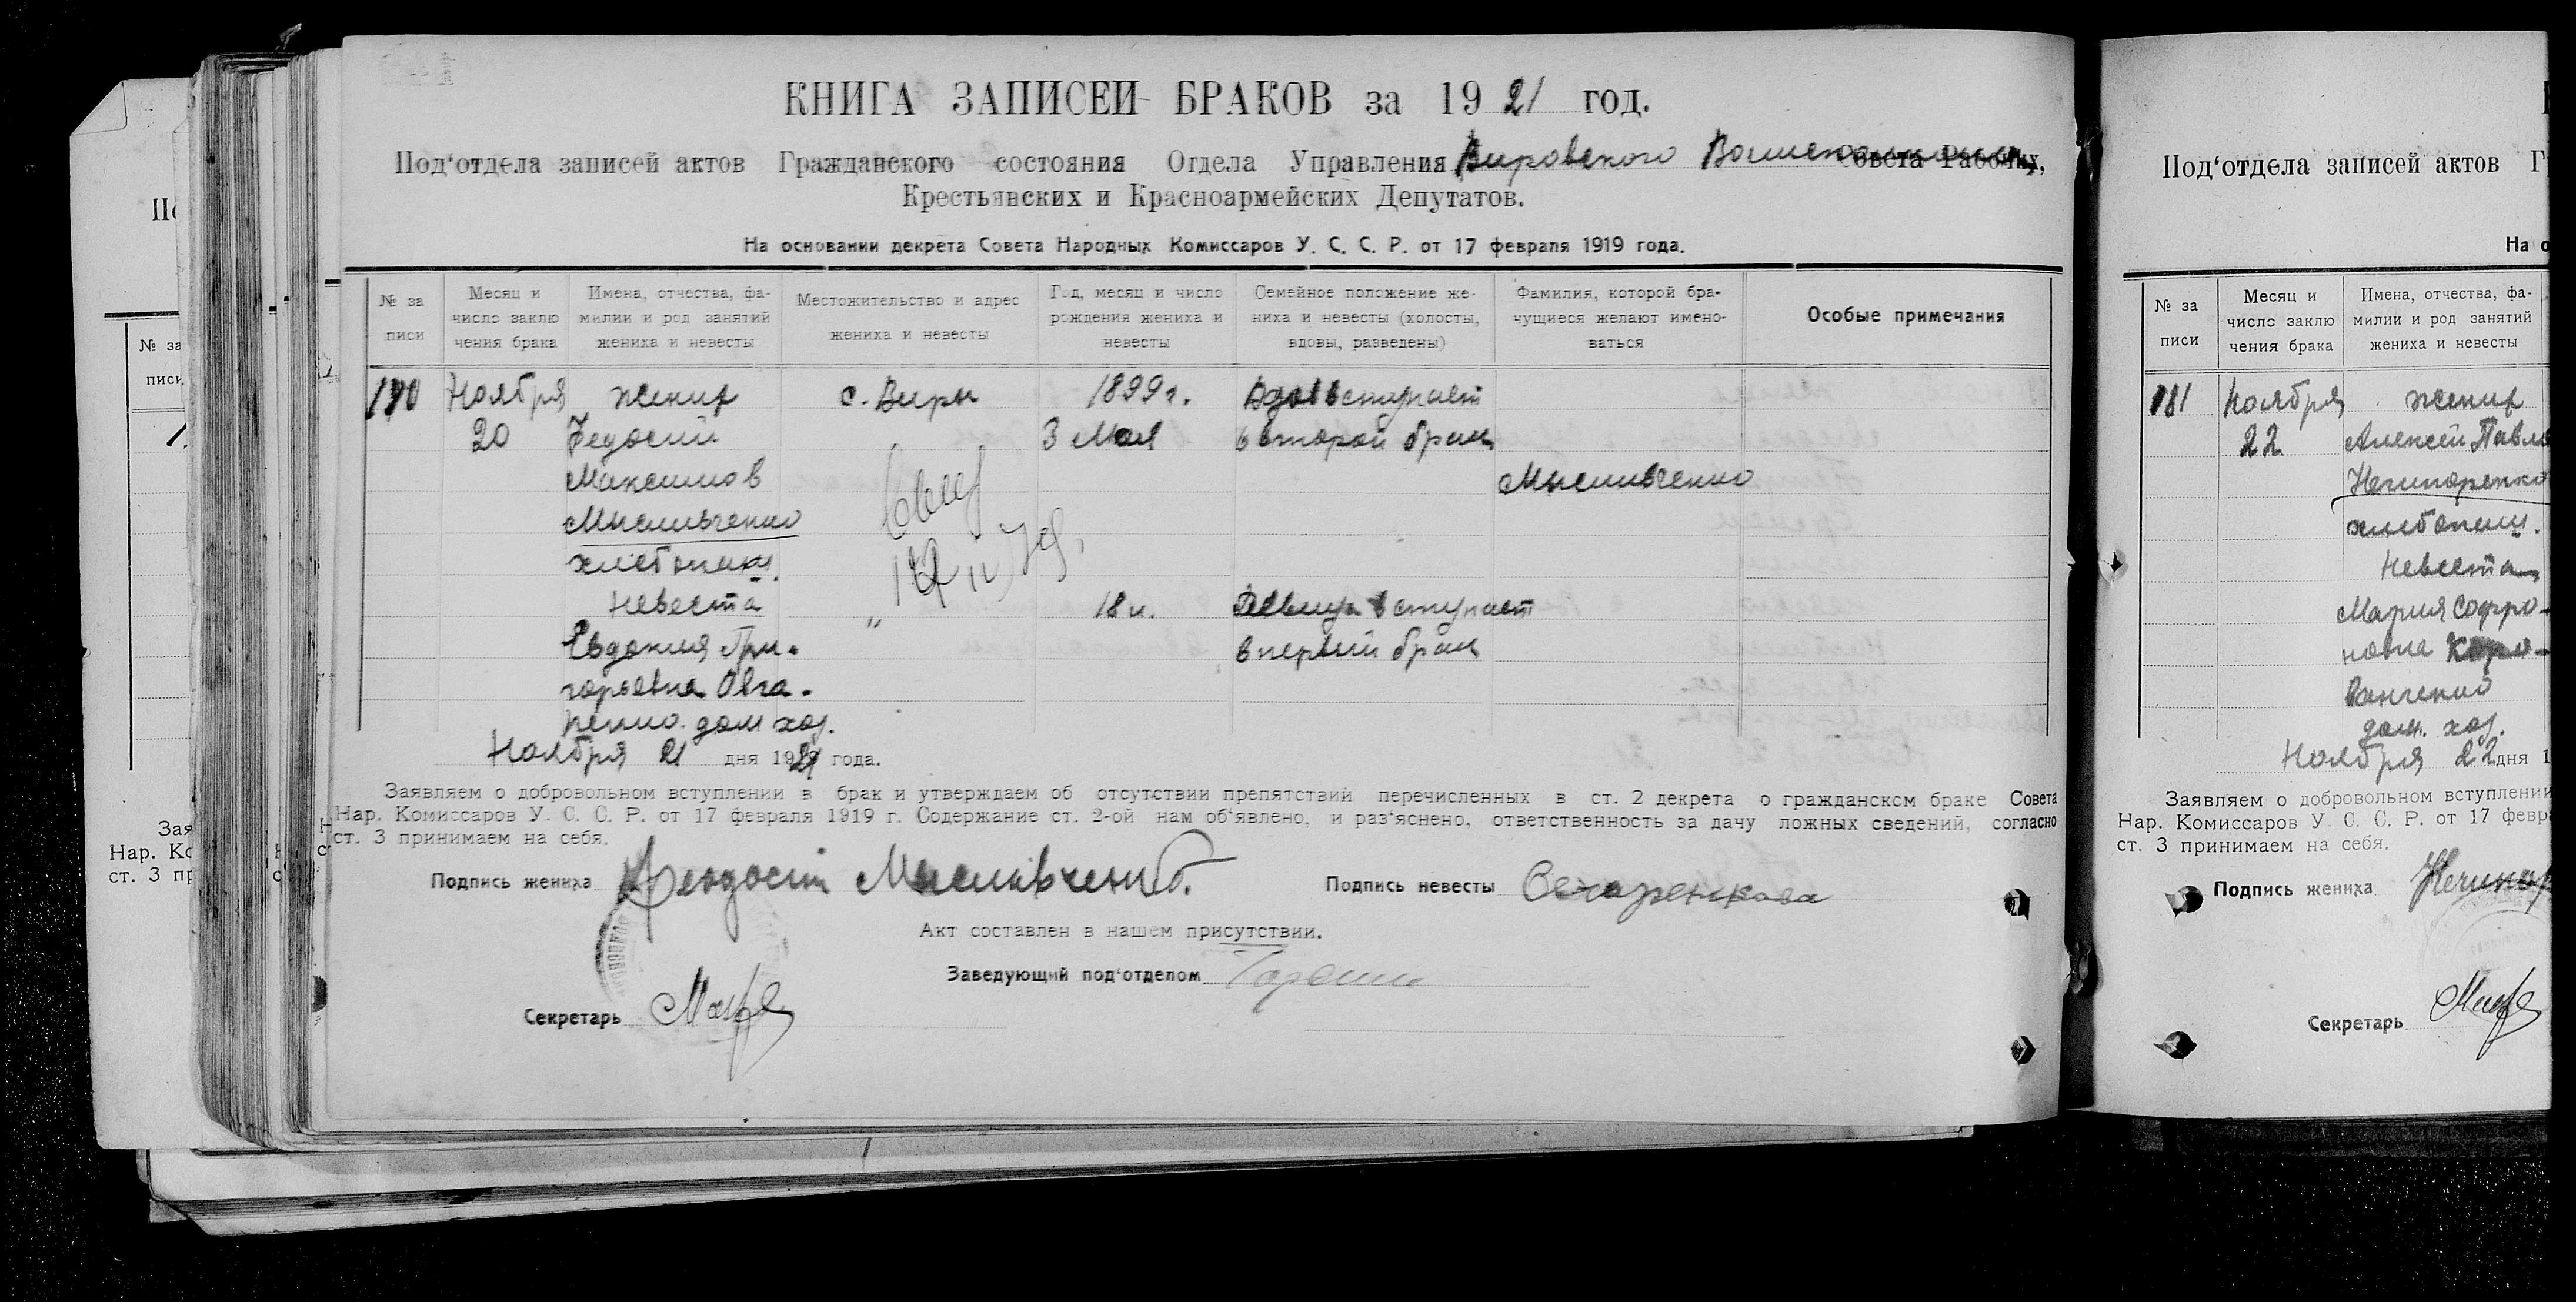 КНИГА ЗАПИСЕЙ БРАКОВ за 1921 год.
Под‘отдела записей актов Гражданского состояния Отдела Управления Вировского Волисполкома Совета Рабочих,
Крестьянских и Красноармейских Депутатов.
На основании декрета Совета Народных Комиссаров У. С. С. Р. от 17 февраля 1919 года.
№ за писи
Месяц и число заклю чения брака
Имена, отчества, фа- милии и род занятий жениха и невесты
Местожительство и адрес жениха и невесты
Год, месяц и число рождения жениха и невесты
Семейное положение же- ниха и невесты (холосты, вдовы, разведены)
Фамилия, которой бра- чущиеся желают имено- ваться
Особые примечания
Ноября жених с. Виры 1899 г. вступает
20 Федосий 3 Мая в второй брак
Максимов Мысливченко
Мысливченко
хлебопаш.
Невеста " 18 л. Девица вступает
Евдокия Гри- в первый брак
горьевна
дом. хоз.
Ноября 21 дня 1921 года.
Заявляем о добровольном вступлении в брак и утверждаем об отсутствии препятствий перечисленных в ст. 2 декрета о гражданском браке Совета
Нар. Комиссаров У. С. С. Р. от 17 февраля 1919 г. Содержание ст. 2-ой нам об‘явлено, и раз‘яснено, ответственность за дачу ложных сведений, согласно
ст. 3 принимаем на себя.
Подпись жениха Феодосий Мысливченко Подпись невесты
Акт составлен в нашем присутствии.
Заведующий под‘отделом
Секретарь
№ за
писи
Зая
Нар. Ко
ст. 3 пр
Под‘отдела записей актов Г
На о
№ за писи
Месяц и число заклю чения брака
Имена, отчества, фа- милии и род занятий жениха и невесты
181 Ноября жених
22 Алексей Павло
Нечипоренко
хлебопаш.
Невеста
Мария Софро-
новна
дом. хоз.
Ноября 22 дня 1
Заявляем о добровольном вступлении
Нар. Комиссаров У. С. С. Р. от 17 февра
ст. 3 принимаем на себя.
Подпись жениха Нечипор
Секретарь